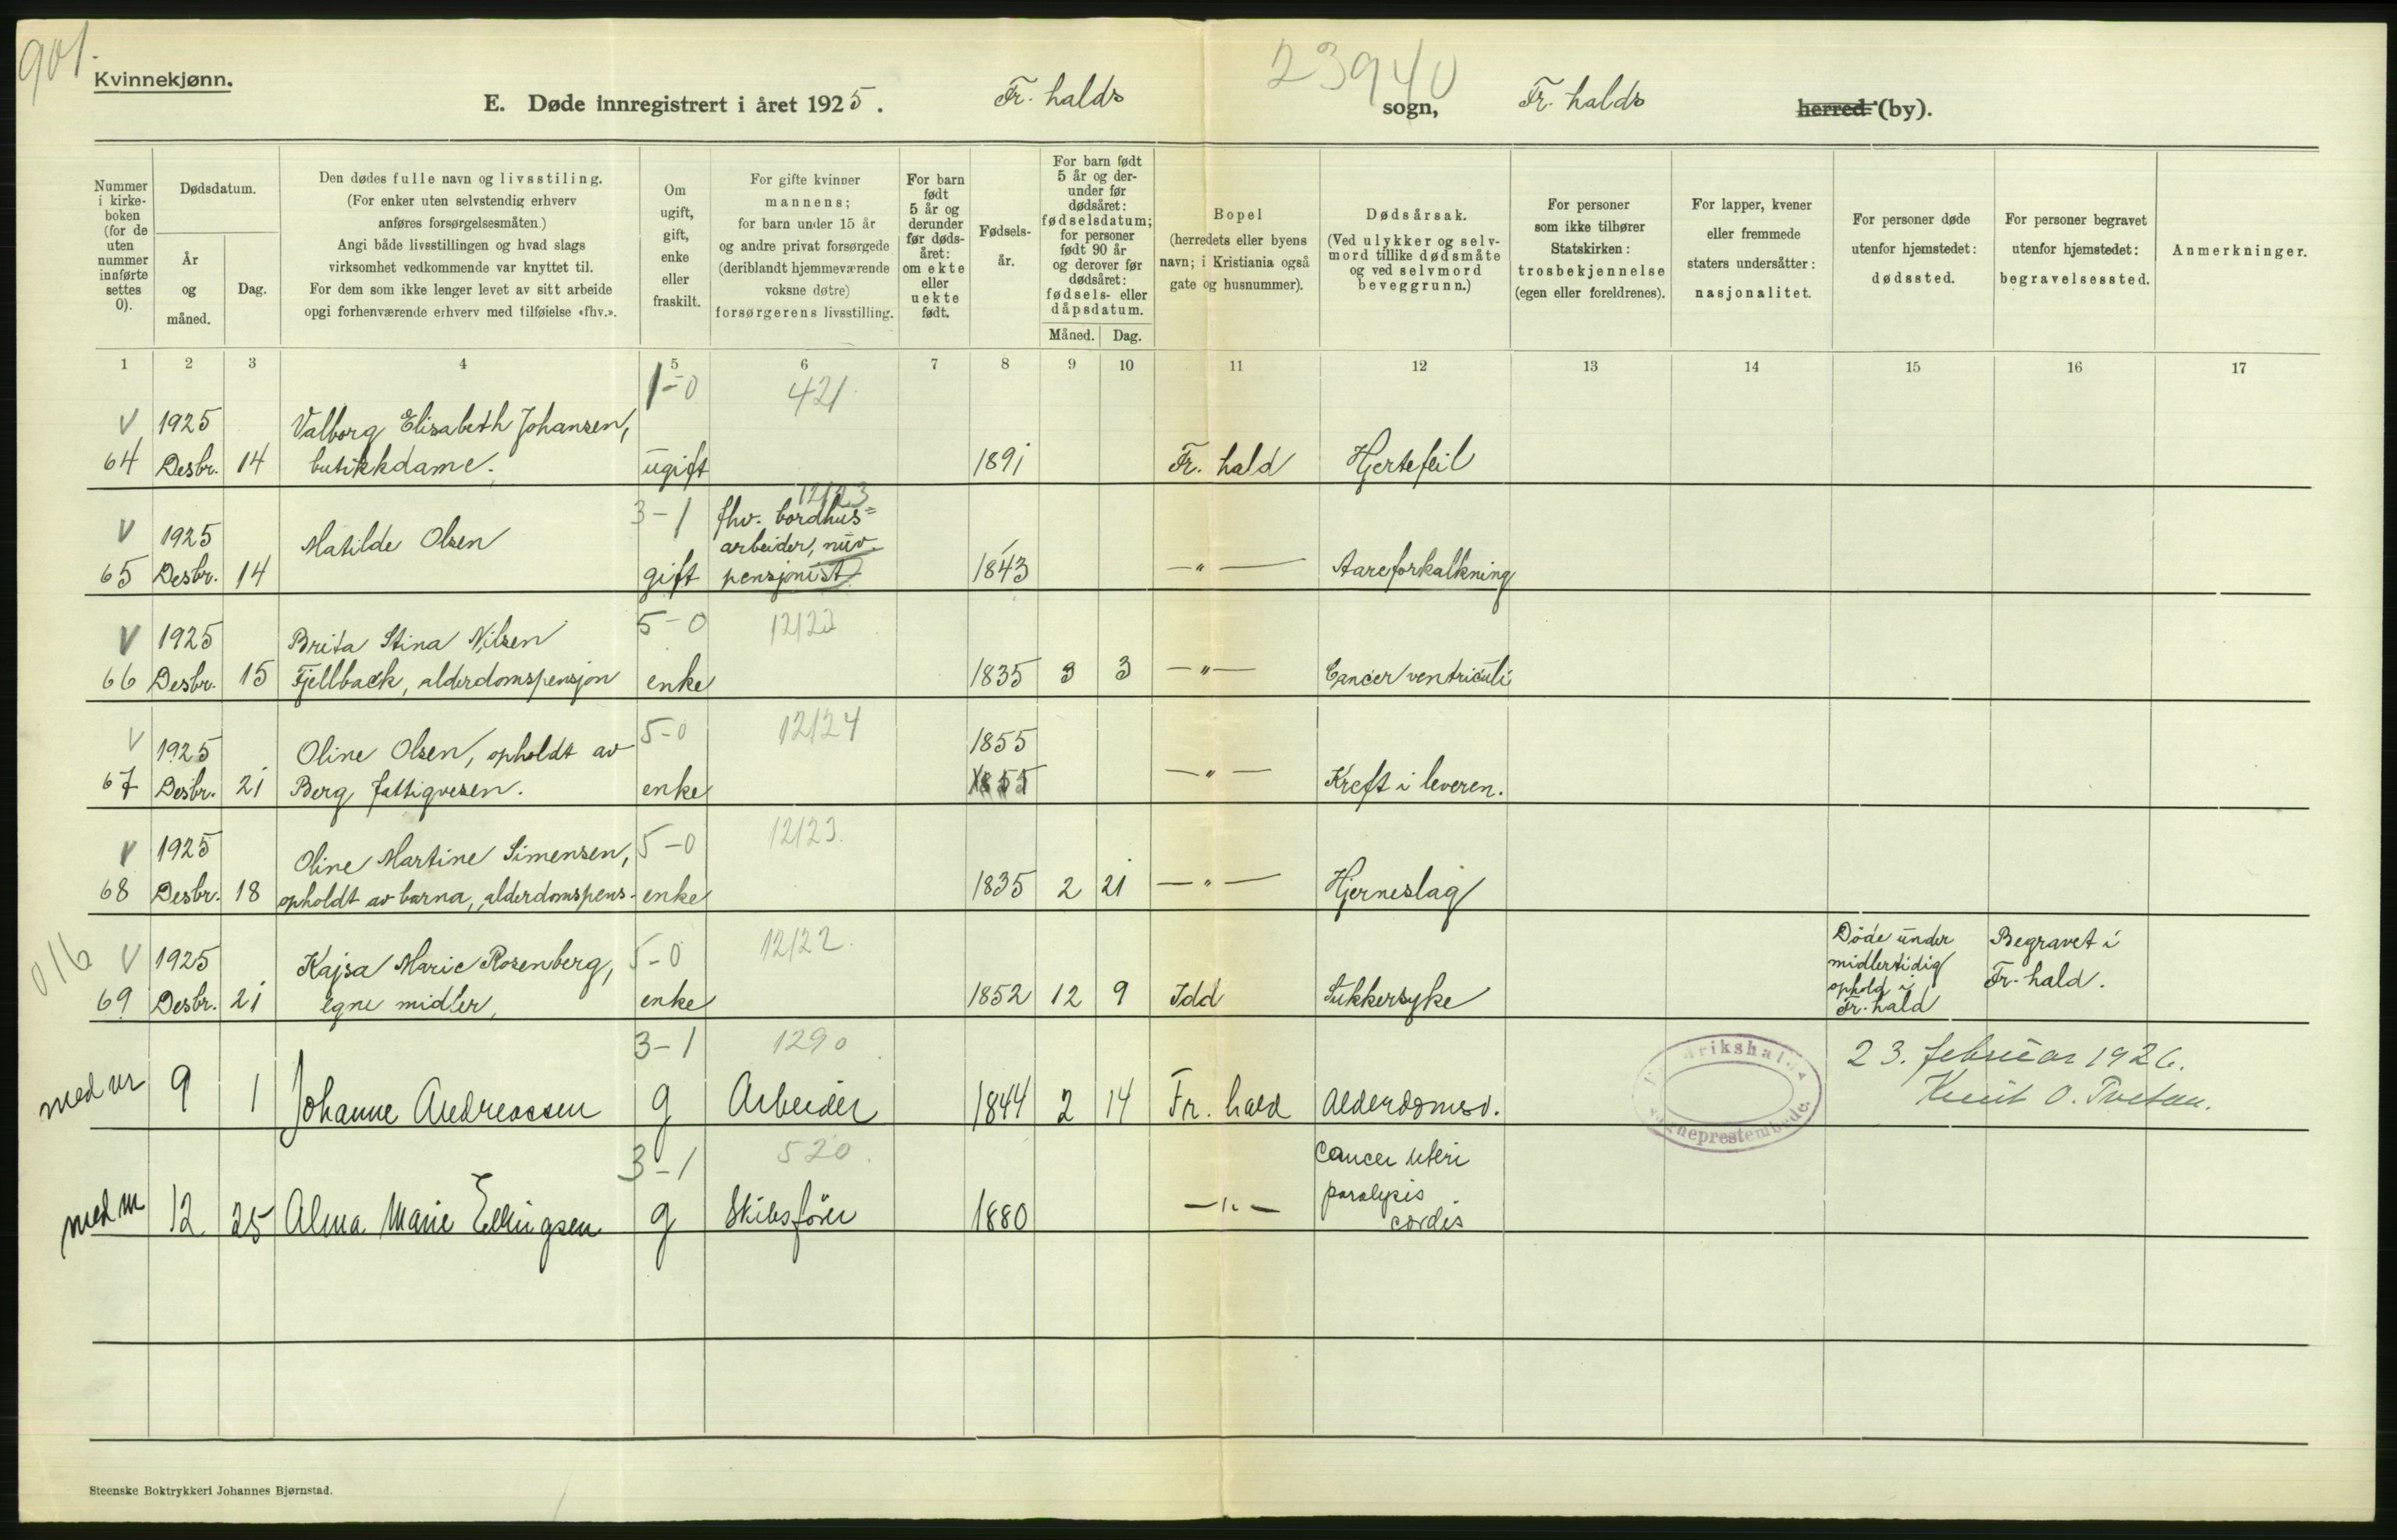 901.
Kvinnekjønn.
23940
E. Døde innregistrert i året 1925. Fr. halds sogn, Fr. halds herred (by).
Nummer i kirkeboken (for de uten nummer innførte settes 0).
Dødsdatum.
År og måned.
Dag.
Den dødes fulle navn og livsstiling.
(For enker uten selvstendig erhverv
anføres forsørgelsesmåten.)
Angi både livsstillingen og hvad slags
virksomhet vedkommende var knyttet til.
For dem som ikke lenger levet av sitt arbeide
opgi forhenværende erhverv med tilføielse «fhv.».
Om ugift, gift, enke eller fraskilt.
For gifte kvinner
mannens;
for barn under 15 år
og andre privat forsørgede
(deriblandt hjemmeværende
voksne døtre)
forsørgerens livsstilling.
For barn født 5 år og derunder før dødsåret: om ekte eller uekte født.
Fødselsår.
For barn født 5 år og derunder før dødsåret: fødselsdatum; for personer født 90 år og derover før dødsåret: fødsels- eller dåpsdatum.
Måned. Dag.
Bopel
(herredets eller byens
navn; i Kristiania også
gate og husnummer).
Dødsårsak.
(Ved ulykker og selv-
mord tillike dødsmåte
og ved selvmord
beveggrunn.)
For personer
som ikke tilhører
Statskirken:
trosbekjennelse
(egen eller foreldrenes).
For lapper, kvener
eller fremmede
staters undersåtter:
nasjonalitet.
For personer døde
utenfor hjemstedet:
dødssted.
For personer begravet
utenfor hjemstedet:
begravelsessted.
Anmerkninger.
1 2 3 4 5 6 7 8 9 10 11 12 13 14 15 16 17
1-0 421
V 1925 Valborg Elisabeth Johansen,
64 Desbr. 14 butikkdame. ugift 1891 Fr. hald Hjertefeil
3-1 12123
V 1925 Matilde Olsen fhv. bordhus=
arbeider, nuv.
65 Desbr. 14 gift pensjonist 1843 —"— Aareforkalkning
5-0 12122
V 1925 Brita Stina Nilsen
66 Desbr. 15 Fjellback, alderdomspensjon enke 1835 3 3 —"— Cancer ventriculi
5-0 12124
V 1925 Oline Olsen, opholdt av 1855
67 Desbr. 21 Berg fattigvesen. enke 1855 —"— Kreft i leveren.
5-0 12123.
V 1925 Oline Martine Simensen,
68 Desbr. 18 opholdt av barna, alderdomspens. enke 1835 2 21 —"— Hjerneslag
016 5-0 12122.
V 1925 Kajsa Marie Rosenberg,
69 Desbr. 21 egne midler, enke 1852 12 9 Idd Sukkersyke
Døde under
midlertidig
ophold i
Fr. hald
Begravet i
Fr. hald.
3-1 1290
9 1 Johanne Andreassen g Arbeider 1844 2 14 Fr. hald Alderdomssv.
23. februar 1926.
Knut O. Tvetau.
3-1 520.
12 25 Alma Marie Ellingsen g Skibsfører 1880 —"—
Cancer uteri
paralysis
cordis
Steenske Boktrykkeri Johannes Bjørnstad.